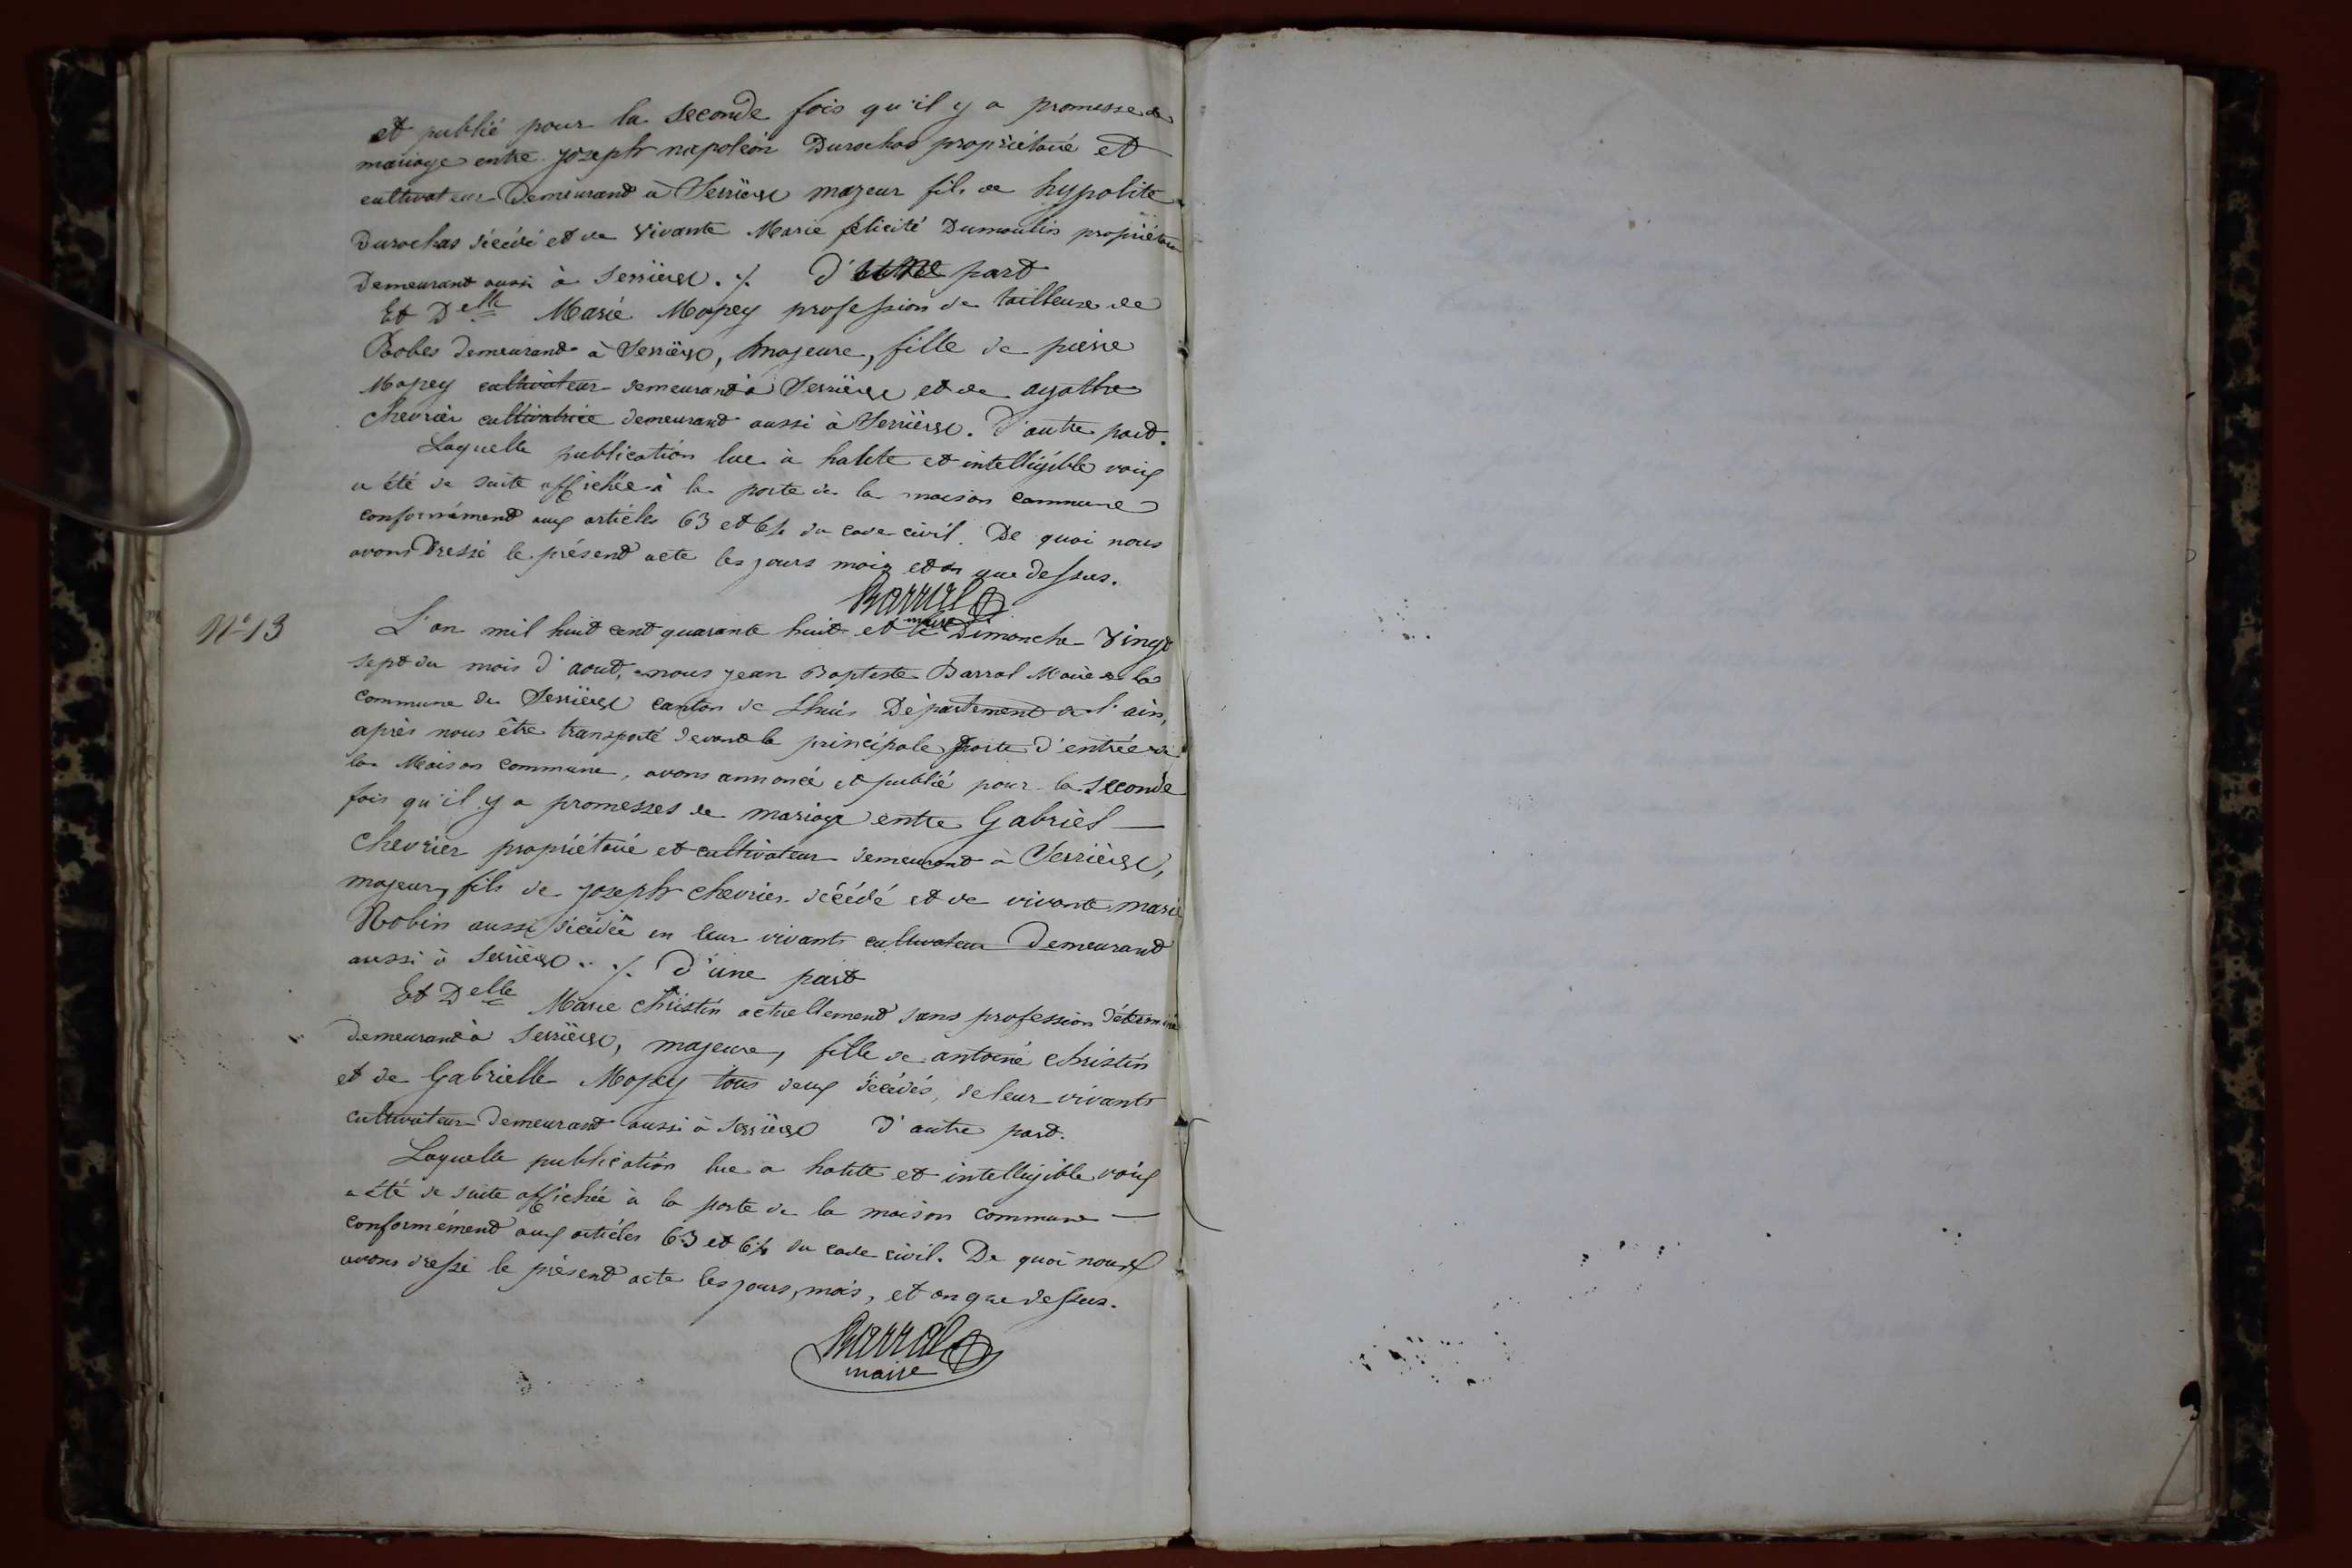 et publié pour la seconde fois qu'il y a promesse de
mariage entre joseph napoléon Durochas propriétaire et
cultivateur demeurand à Serrières majeur fils de hypolite
Durochas décédé et de vivante Marie félicité Dumoulin propriétaire
demeurand aussi à Serrières ./. d'une part
Et Delle Marie Mopey profession de tailleuse de
Robes demeurand à Serrières, majeure, fille de pierre
Mopey cultivateur demeurand à Serrières et de agathe
chevrier cultivatrice demeurand aussi à Serrières. D'autre part.
Laquelle publication lue à hatite et intelligible voix
a été de suite affichée à la porte de la maison commune
conformémend aux articles 63 et 64 du code civil. De quoi nous
avons Dressé le présend acte les jours mois et an que dessus.
Barral
maire
N° 13
L'an mil huit cent quarante huit et le Dimanche Vingt
sept du mois d'aout, nous jean Baptiste Barral Maire de la
commune de Serrières canton de Lhuis Département de l'ain,
après nous être transporté devant la principale porte d'entrée de
la Maison commune, avons annoncé et publié pour la seconde
fois qu'il y a promesses de mariage entre Gabriel
Chevrier propriétaire et cultivateur demeurand à Serrières,
majeur, fils de joseph chevrier décédé et de vivante marie
Robin aussi décédée en leur vivants cultivateur Demeurand
aussi à Serrières ./. d'une part
Et Delle Marie christin actuellemend sans profession déterminé
demeurand à Serrières, majeure, fille de antoine christin
et de Gabrielle Mopey tous deux décédés, de leur vivants
cultivateur demeurand aussi à Serrières d'autre part.
Laquelle publication lue a hatite et intelligible voix
a été de suite affichée à la porte de la maison commune
conformémend aux articles 63 et 64 du code civil. De quoi nous
avons dressé le présend acte les jours, mois, et an que dessus.
Barral
maire